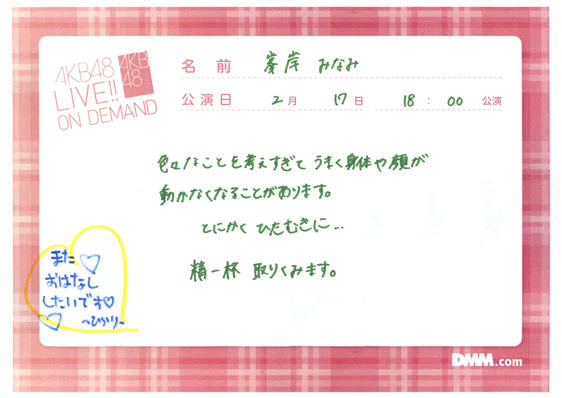 AKB48
LIVE!!
ON DEMAND
AKB
48
名前 峯岸 みなみ
公演日 2月 17日 18:00 公演
色々なことを考えすぎて うまく身体や顔が
動かなくなることがあります。
とにかく ひたむきに...
精一杯 取りくみます。
また♡
おはなし
したいです♡
♡ ~ひかり~
DMM.com